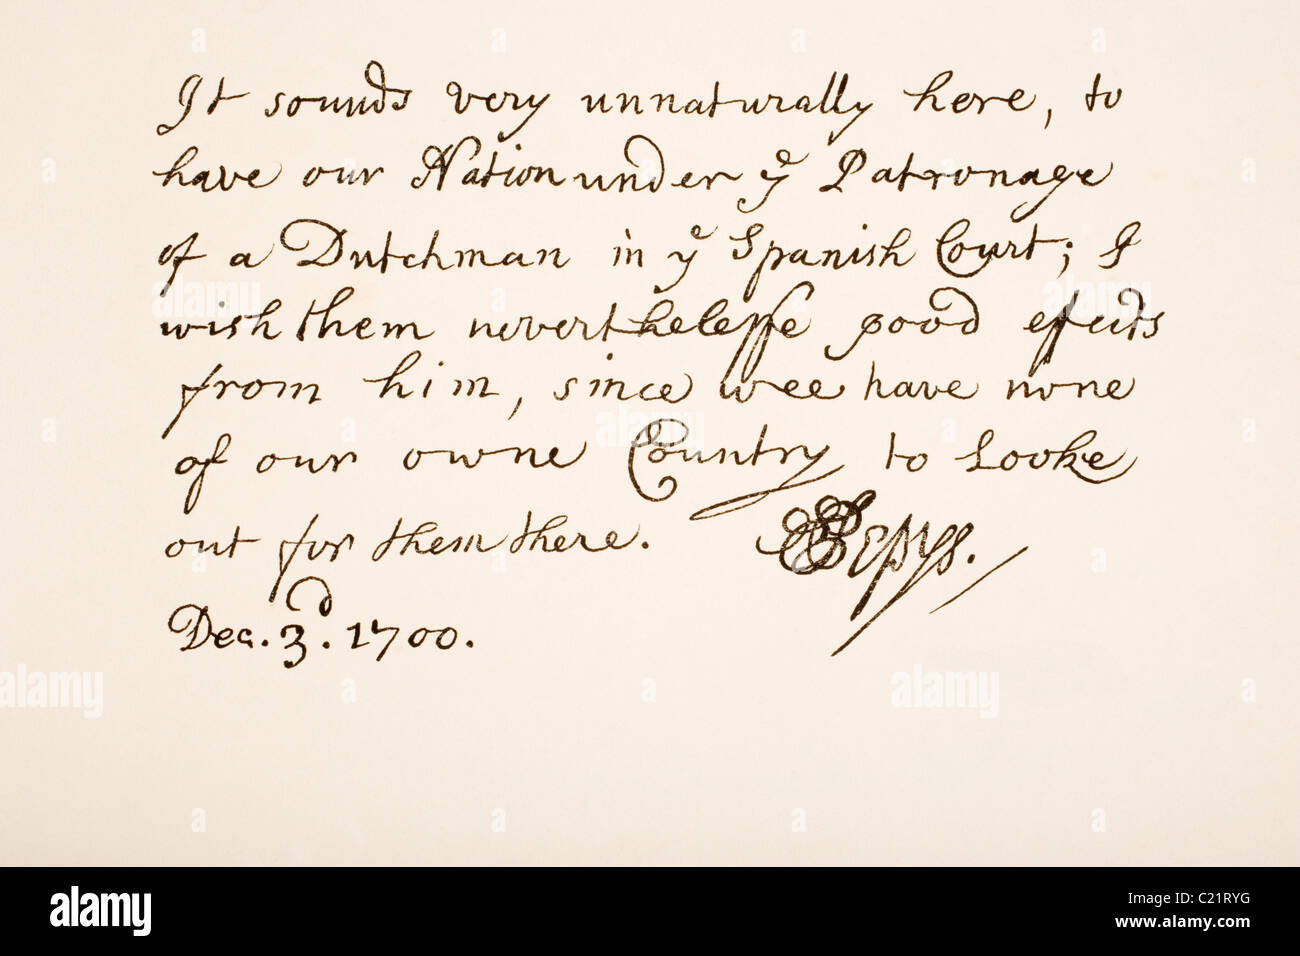 It sounds very unnaturally here, to
have our Nation under yͤ Patronage
of a Dutchman in yͤ Spanish Court; I
wish them neverthelesse good efects
from him, since wee have none
of our owne Country to Looke
out for them there. SPepys.
Dec. 3ᵈ. 1700.
alamy
Image ID: C21RYG
www.alamy.com